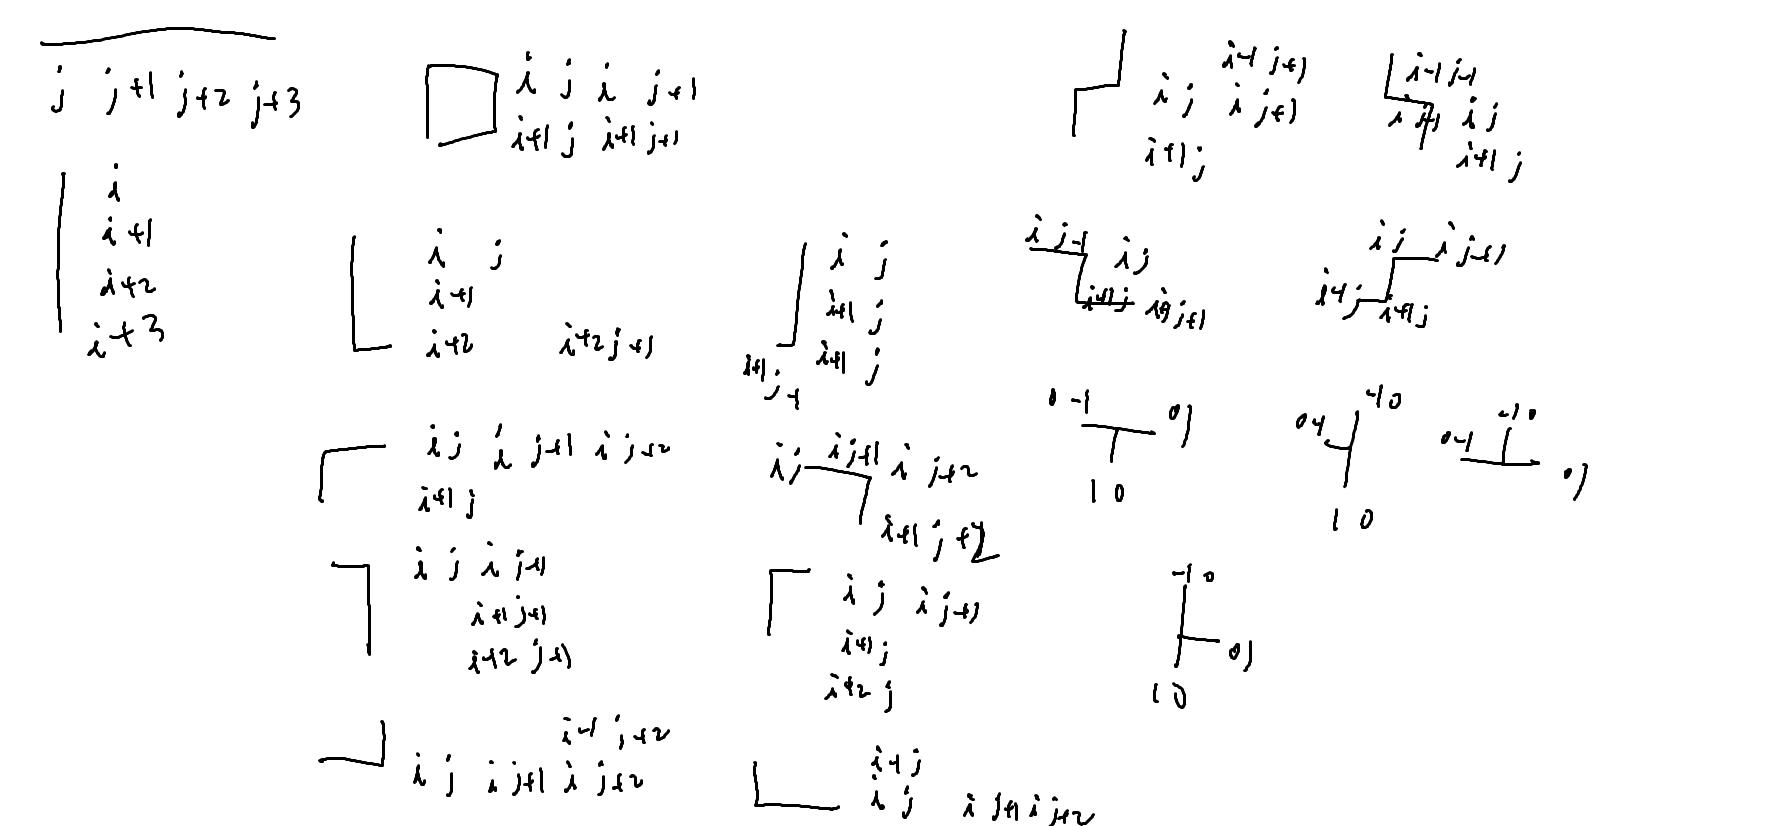 j j+1 j+2 j+3
i
i+1
i+2
i+3
i j i j+1
i+1 j i+1 j+1
i j
i+1
i+2 i+2 j+1
i j i j+1 i j+2
i+1 j
i j i j+1
i+1 j+1
i+2 j+1
i-1 j+2
i j i j+1 i j+2
i j
i+1 j
i+1 j
i+1 j-1
i j i j+1 i j+2
i+1 j+2
i j i j+1
i+1 j
i+2 j
i-1 j
i j i j+1 i j+2
i-1 j+1
i j i j+1
i+1 j
i-1 j-1
i j-1 i j
i+1 j
i j-1 i j
i+1 j i+1 j+1
i j i j+1
i+1 j
0 -1 0 1
1 0
-1 0
0 -1
1 0
-1 0
0 -1
0 1
-1 0
0 1
1 0